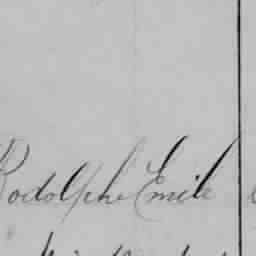 Rodolphe Emile